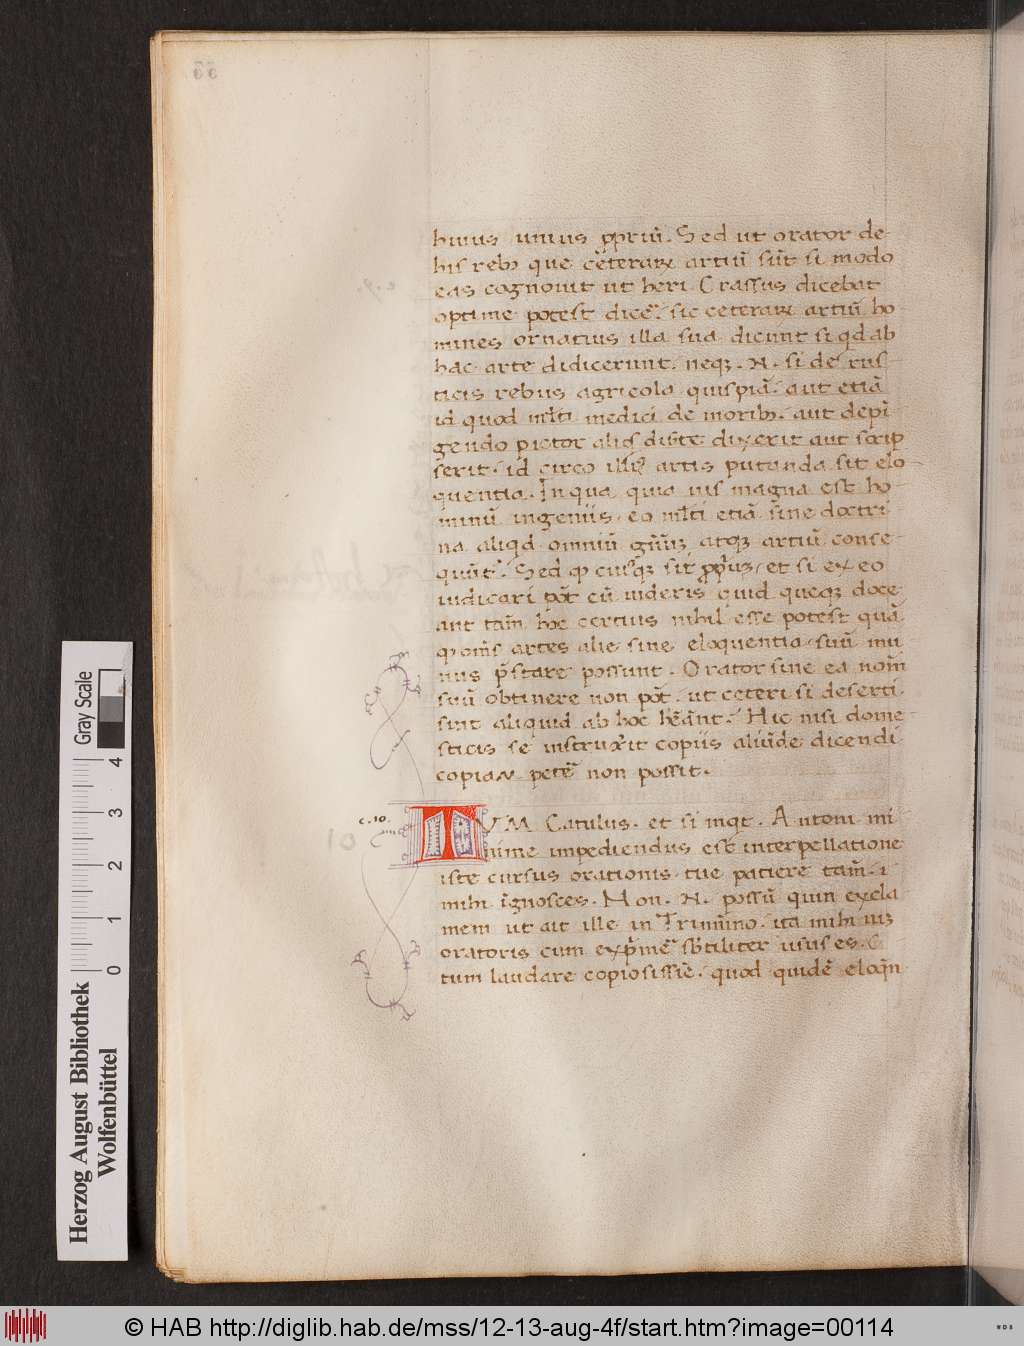 huius unius ꝓpriũ. Sed ut orator de
his rebꝫ que cẽterarꝝ artiũ sũt si modo
eas cognouit ut heri Crassus dicebat
optime potest dicẽ. sic ceterarꝝ artiũ ho-
mines ornatius illa sua dicunt si qd ab
hac arte didicerunt. neqꝫ .N. si de rus-
ticis rebus agricola quispiã. aut etiã
id quod ml̃ti medici de moribꝫ. aut depĩ
gendo pictor aliqͥs dixerit aut scrip
serit. id circo illiꝰ artis putanda sit elo-
quentia. In qua quia uis magna est ho-
minũ ingeniis. eo ml̃ti etiã sine doctri-
na aliqd omniũ gñũ atqꝫ artiũ conse-
quũt. Sed qͩ cuiusqꝫ sit ꝓpriũ. et si ex eo
iudicari põt cũ uideris quid queqꝫ doce-
ant tam̃ hoc certius nihil esse potest quã
ꝙ om̃s artes alie sine eloquentia suũ mu
nus p̃stare possunt. Orator sine ea nom̃
suũ obtinere non põt. ut ceteri si deserti
sint aliquid ab hoc hẽãnt. Hic nisi dome-
sticis se instruxĩt copiis aliũde dicendi
copiaꝫ petẽ non possit.
c. 10.
TVM Catulus. et si inqt. Antoni mi
nime impediendus est interpellatione
iste cursus orationis tue patiere tam̃. i
mihi ignosces. Non .N. possũ quin excla
mem ut ait ille in Trinũmo. ita mihi uiꝫ
oratoris cum exp̃mẽ sbtiliter uisus es.
tum laudare copiosissiẽ. quod quidẽ eloqñ
Gray Scale
4
3
2
1
0
Herzog August Bibliothek
Wolfenbüttel
© HAB http://diglib.hab.de/mss/12-13-aug-4f/start.htm?image=00114